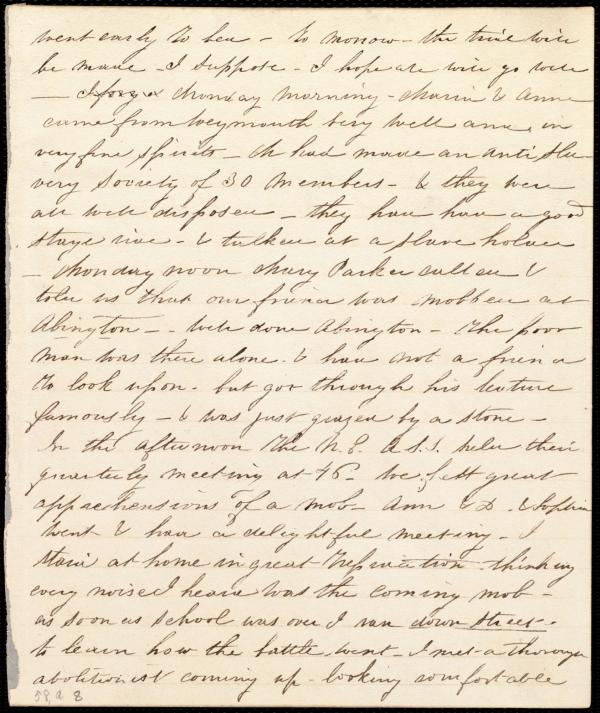 went early to bed – to morrow – the trial will
be made – I suppose – I hope all will go well
— Monday morning – Maria & Anne
came from Weymouth very well and in
very fine spirits – M had made an Anti Sla-
very Society of 30 members – & they were
all well disposed – they had had a good
stage ride – & talked at a slave holder
– Monday noon Mary Parker called &
told us that our friend was mobbed at
Abington – – Well done Abington – The poor
man was there alone. & had not a friend
to look upon – but got through his lecture
famously – & was just grazed by a stone –
In the afternoon the N. E. A.S.S. held their
quarterly meeting at 46 – We felt great
apprehensions of a mob – Ann & D. & Sophia
went & had a delightful meeting – I
staid at home in great trepidation thinking
every noise I heard was the coming mob –
as soon as school was over I ran down street –
to learn how the battle went – I met a thorough
abolitionist coming up – looking comfortable
58, 8